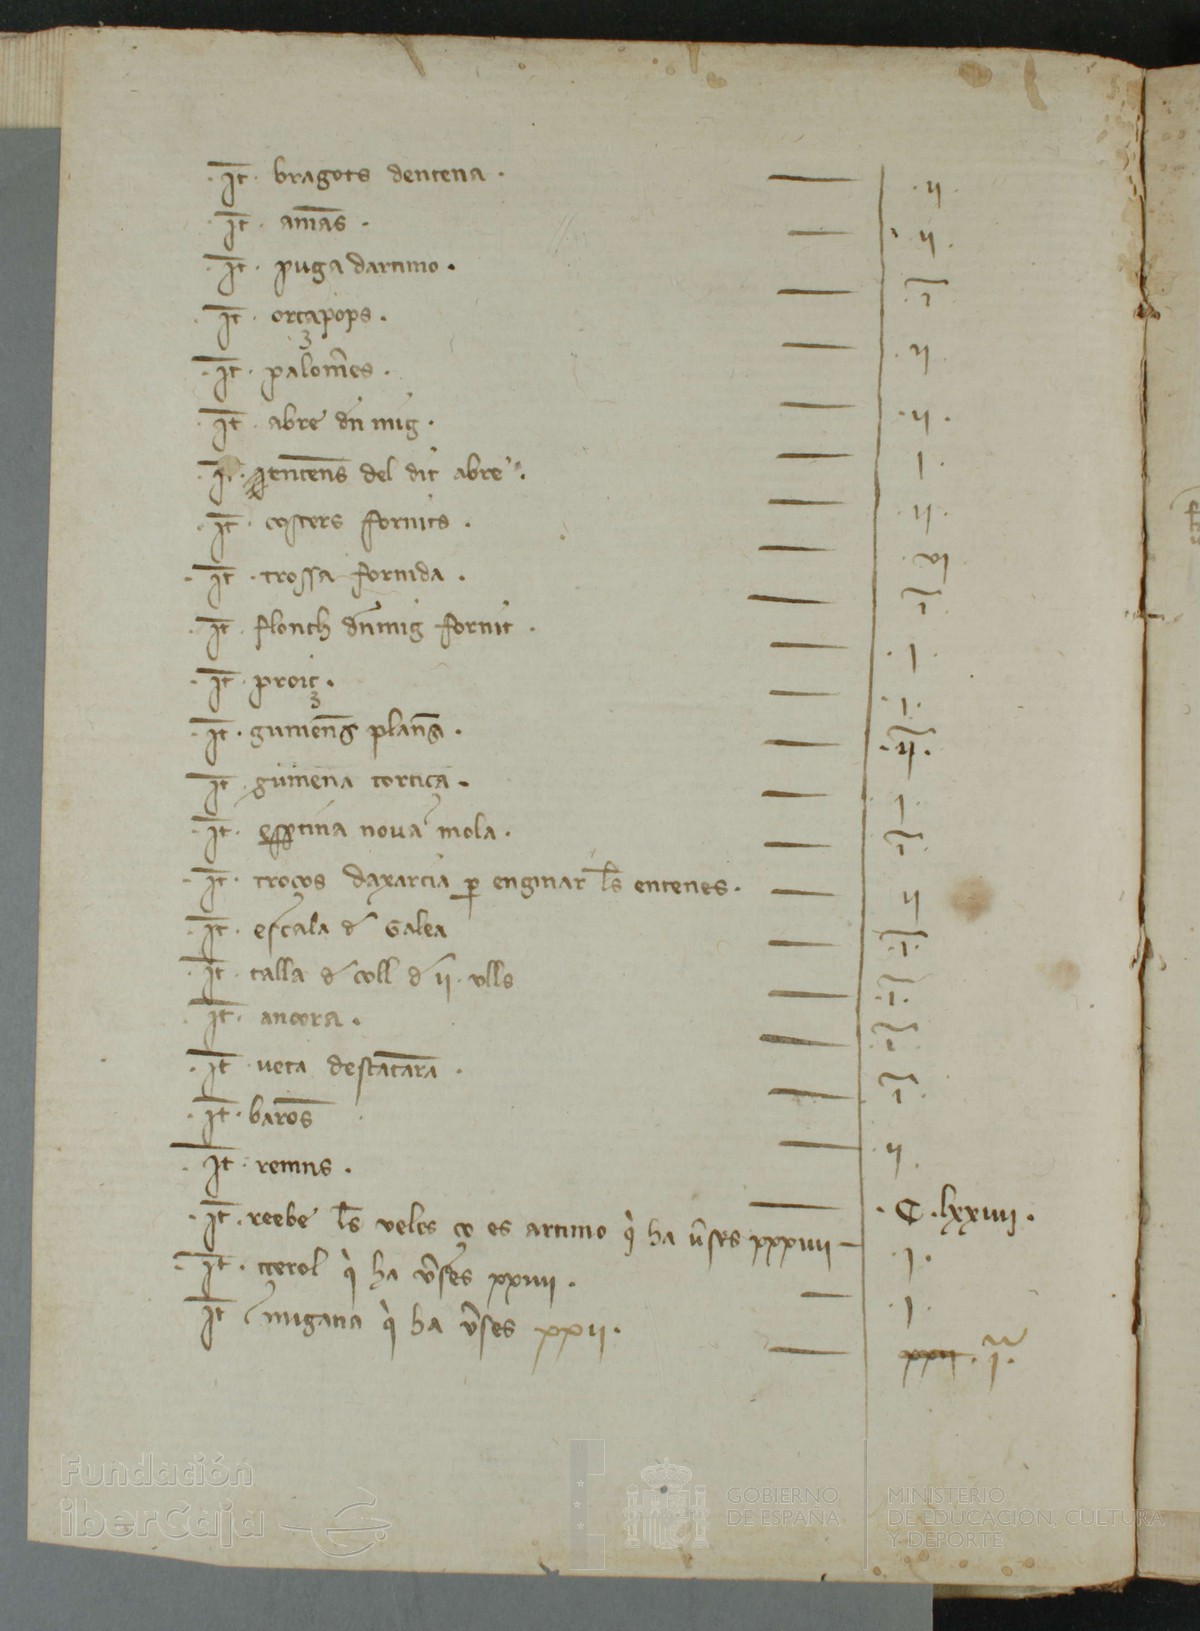 ·It· bragots dentena · — ·ij·
·It· amas · — ·ij·
·It· puga dartimo · — ·ī·
·It· orcapops · — ·ij·
·It· palomes · — ·ij·
·It· abre dn mig · — j
·It· entens del dit abre · — ·ij·
·It· costers fornits · — ·vj
·It· trossa fornida · — ·ī·
·It· flonch dn mig fornit · — j·
·It· proiç · — ·j·
·It· gumens planes · — ·ij·
·It· gumena tortiça · — ·j·
·It· nova mola · — ·ī·
·It· troços daxarcia p enginar ls entenes · — ij
·It· escala d Galea — ·ī·
·It· talla d coll d ij ulls — ·ī·
·It· ancora · — ·ī·
·It· veta destatara · — ·ī·
·It· baros — ·ij·
·It· remns · — ·C·lxxiiij·
·It· reebe ls veles ço es artimo q ha vses xxxiiij — ·j·
·It· terçerol q ha vses xxiiij · — ·j·
It migana q ha vses xxij · — xxij · j·
Fundación
iberCaja
GOBIERNO
DE ESPAÑA
MINISTERIO
DE EDUCACIÓN, CULTURA
Y DEPORTE